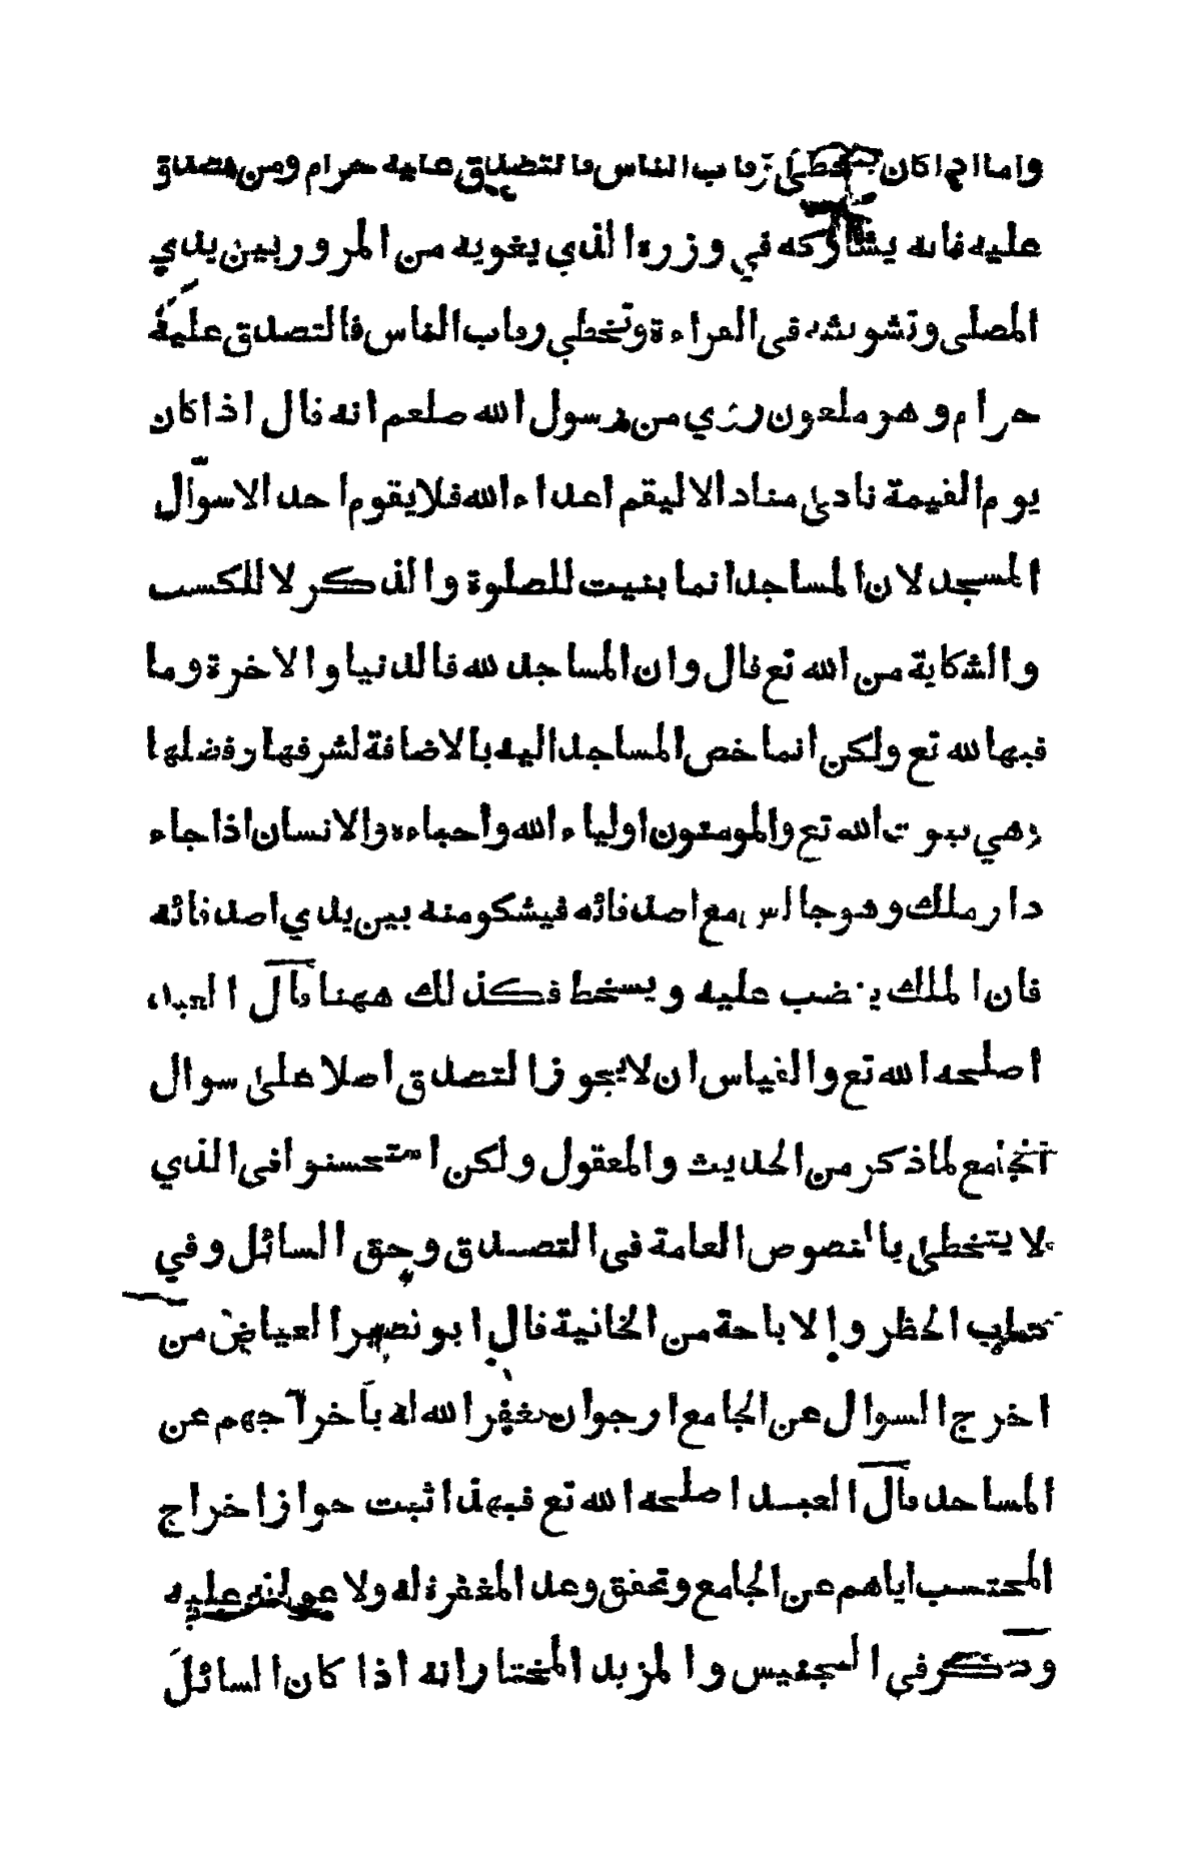 واما اذا كان يتخطى رقاب الناس فالتصدق عليه حرام ومن تصدق
عليه فانه يشاركه في وزره الذي يغويه من المرور بين يدي
المصلى وتشويشه فى القراءة وتخطي رقاب الناس فالتصدق عليه
حرام وهو ملعون روي من رسول الله صلعم انه قال اذا كان
يوم القيمة نادى مناد الا ليقم اعداء الله فلا يقوم احد الا سوّال
المسجد لان المساجد انما بنيت للصلوة والذكر لا للكسب
والشكاية من الله تع قال وان المساجد لله فالدنيا والاخرة وما
فيها لله تع ولكن انما خص المساجد اليه بالاضافة لشرفها وفضلها
وهي بيوت الله تع والمومنون اولياء الله واحباءه والانسان اذا جاء
دار ملك وهو جالس مع اصدقائه فيشكو منه بين يدي اصدقائه
فان الملك يغضب عليه ويسخط فكذلك ههنا قال العبد
اصلحه الله تع والقياس ان لا يجوز التصدق اصلا على سوال
الجامع لما ذكر من الحديث والمعقول ولكن استحسنوا فى الذي
لا يتخطى بالنصوص العامة فى التصدق وحق السائل وفي
كتاب الحظر والاباحة من الخانية قال ابو نصر العياض من
اخرج السوال عن الجامع ارجوان يغفر الله له باخراجهم عن
المساجد قال العبد اصلحه الله تع فبهذا ثبت جواز اخراج
المحتسب اياهم عن الجامع وتحقق وعد المغفرة له ولا عليه
وذكر في التجنيس والمزيد المختار انه اذا كان السائل